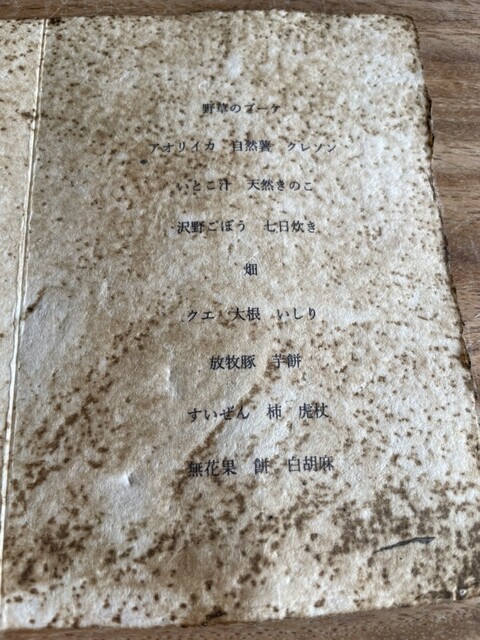 野草のブーケ
アオリイカ 自然薯 クレソン
いとこ汁 天然きのこ
沢野ごぼう 七日炊き
畑
クエ 大根 いしり
放牧豚 芋餅
すいぜん 柿 虎杖
無花果 餅 白胡麻